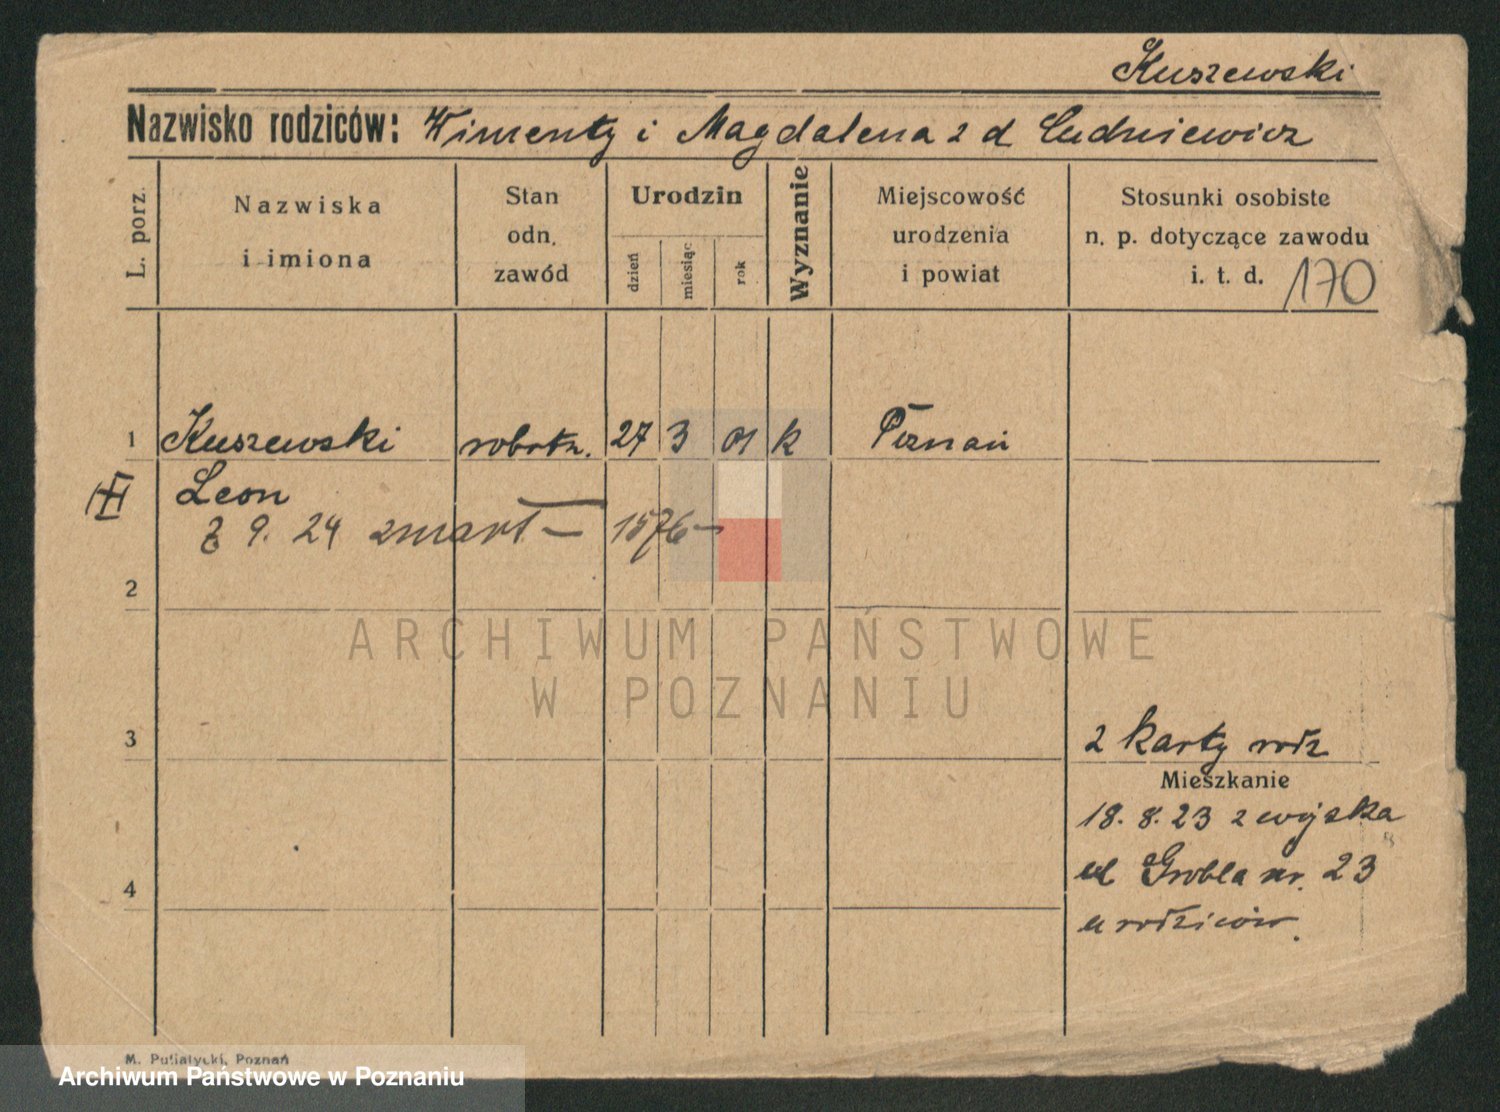 Kuszewski
Nazwisko rodziców: Wincenty i Magdalena z d Ludniewicz
L. porz.
Nazwiska
i imiona
Stan
odn.
zawód
Urodzin
dzień
miesiąc
rok
Wyznanie
Miejscowość
urodzenia
i powiat
Stosunki osobiste
n. p. dotyczące zawodu
i. t. d.
170
1 Kuszewski robotn. 27 3 01 k Poznań
Leon
9. 24 zmarł — 1576 —
2
ARCHIWUM PAŃSTWOWE
W POZNANIU
3
2 karty rodz
Mieszkanie
18. 8. 23 z wojska
ul Grobla nr. 23
4
u rodziców.
M. Putiatycki, Poznań
Archiwum Państwowe w Poznaniu